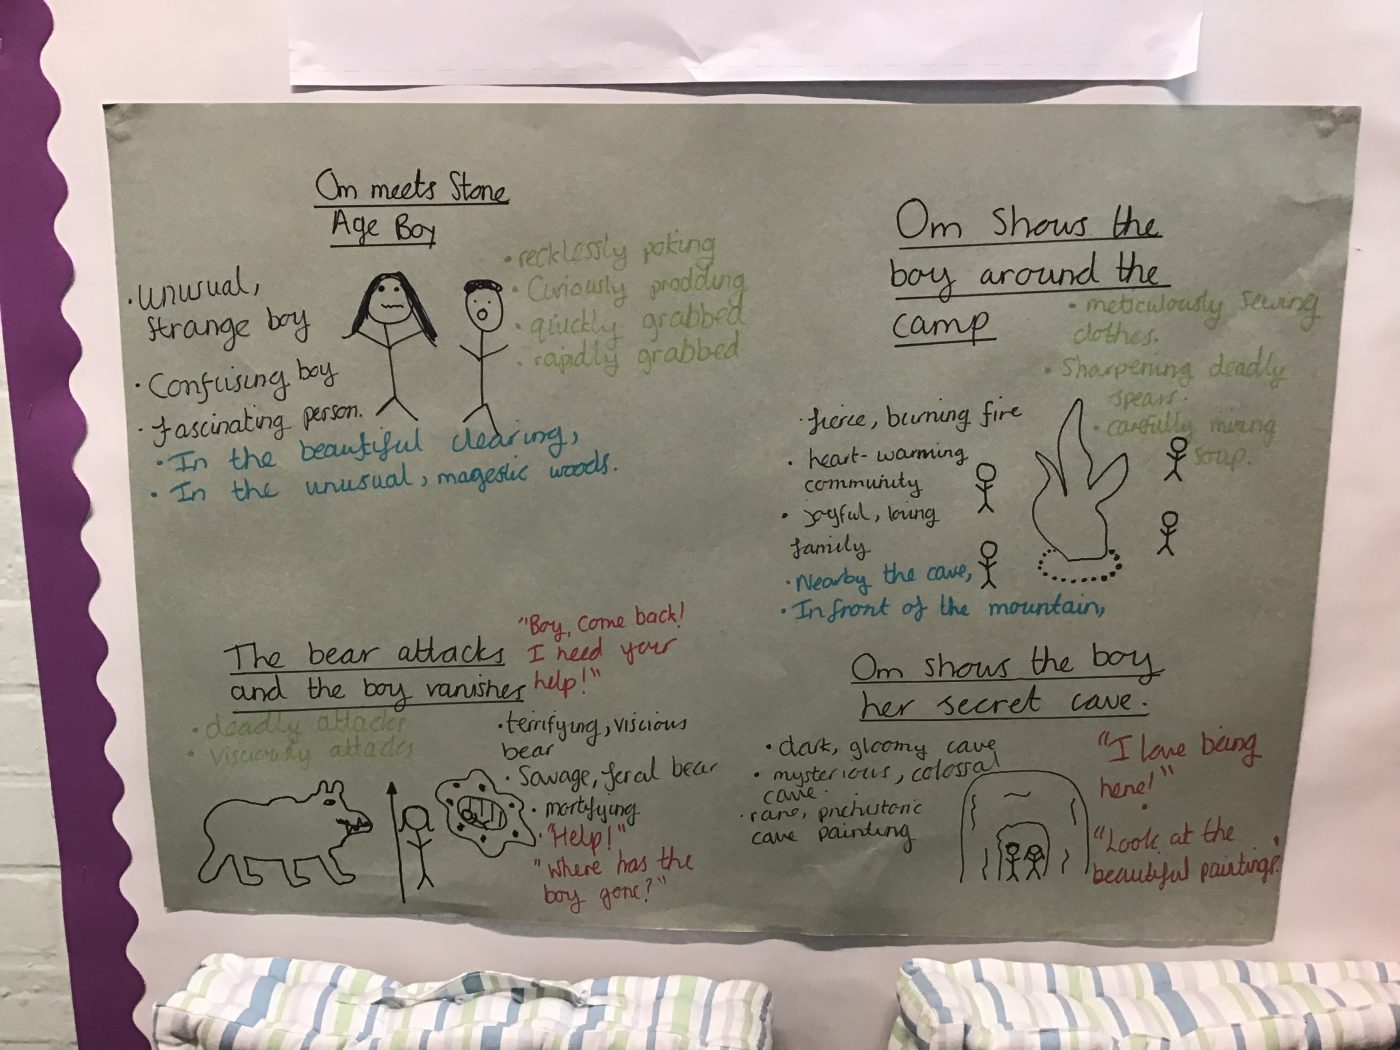 Om meets Stone
Age Boy
• unusual,
strange boy
• Confusing boy
• fascinating person.
• recklessly poking
• Curiously prodding
• quickly grabbed
• rapidly grabbed
• In the beautiful clearing,
• In the unusual, magestic woods.
Om shows the
boy around the
camp
• meticulously sewing
clothes.
• Sharpening deadly
spears.
• carefully mixing
soup.
• fierce, burning fire
• heart-warming
community
• joyful, loving
family
• Nearby the cave,
• In front of the mountain,
The bear attacks
and the boy vanishes
"Boy, come back!
I need your
help!"
• deadly attacks
• visciously attacks
• terrifying, viscious
bear
• Savage, feral bear
• mortifying
• "Help!"
"Where has the
boy gone?"
Om shows the boy
her secret cave.
• dark, gloomy cave
• mysterious, colossal
cave.
• rare, prehistoric
cave painting
"I love being
here!"
"Look at the
beautiful paintings."